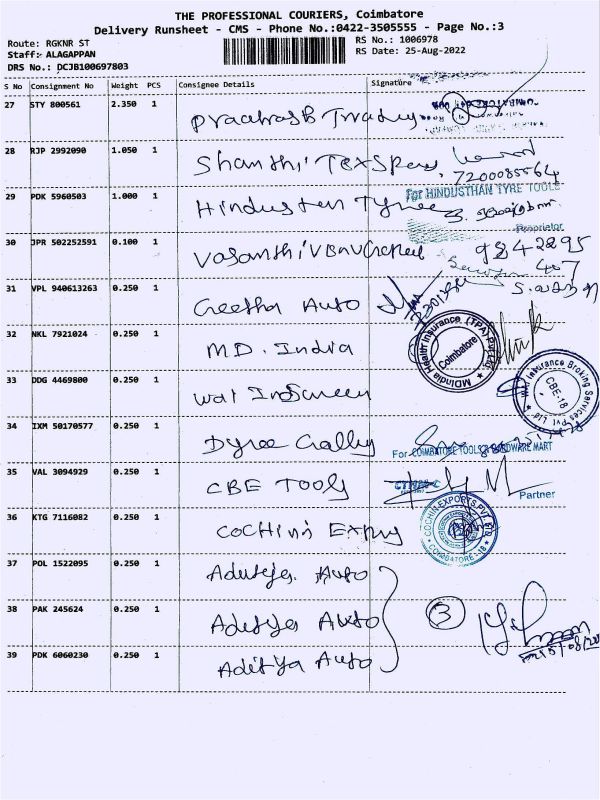 THE PROFESSIONAL COURIERS, Coimbatore
Delivery Runsheet - CMS - Phone No.:0422-3505555 - Page No.:3
Route: RGKNR ST
RS No.: 1006978
Staff: ALAGAPPAN
RS Date: 25-Aug-2022
DRS No.: DCJB100697803
S No Consignment No Weight PCS Consignee Details Signature
27 STY 800561 2.350 1
28 RJP 2992090 1.050 1 Shanthi
7200085564
29 PDK 5960503 1.000 1
For HINDUSTHAN TYRE TOOLS
Proprietor
30 JPR 502252591 0.100 1
9842295
407
31 VPL 940613263 0.250 1 Geetha Auto
32 NKL 7921024 0.250 1 MD. India
MDIndia Health Insurance (TPA) Pvt. Ltd
Coimbatore
33 DDG 4469800 0.250 1
WAI Insurance Broking Services Pvt Ltd
CBE-18
34 IXM 50170577 0.250 1
For COIMBATORE TOOLS & HARDWARE MART
35 VAL 3094929 0.250 1 CBE Tools
Partner
36 KTG 7116082 0.250 1 Cochin
COCHIN EXPORTS PVT LTD
COIMBATORE - 18
37 POL 1522095 0.250 1 Aditya Auto
38 PAK 245624 0.250 1 Aditya Auto
3
39 PDK 6060230 0.250 1 Aditya Auto